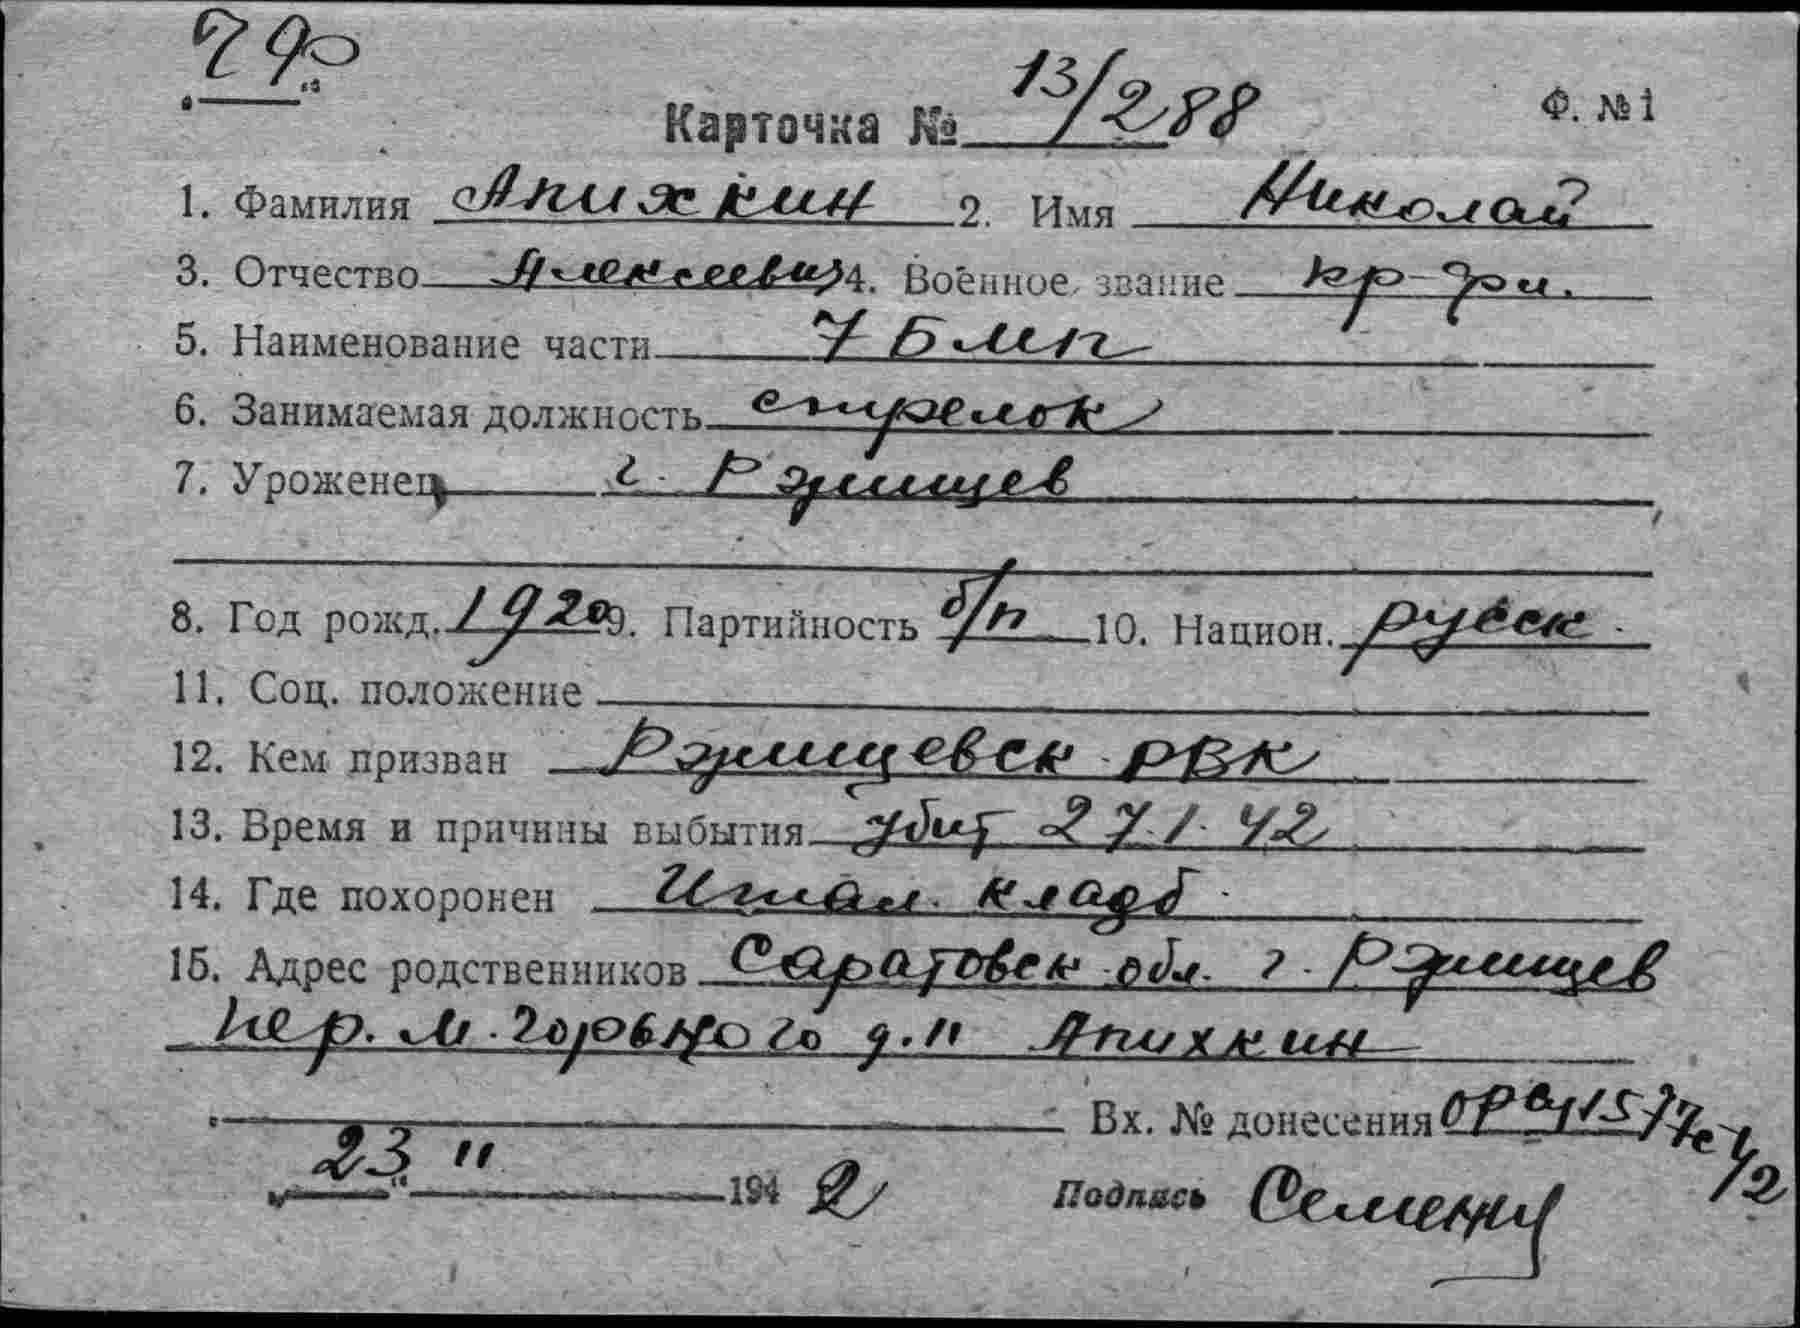 Карточка № 13/288
Ф. № 1
1. Фамилия Апихкин 2. Имя Николай
3. Отчество Алексеевич 4. Военное звание кр-фл.
5. Наименование части 7 БМП
6. Занимаемая должность стрелок
7. Уроженец г. Ртищев
8. Год рожд. 1920 9. Партийность б/п 10. Национ. русск.
11. Соц. положение
12. Кем призван Ртищевск. РВК
13. Время и причины выбытия убит 27.1.42
14. Где похоронен Итал. кладб.
15. Адрес родственников Саратовск. обл. г. Ртищев
пер. М. Горького д. 11 Апихкин
Вх. № донесения
23 " 11 1942 Подпись